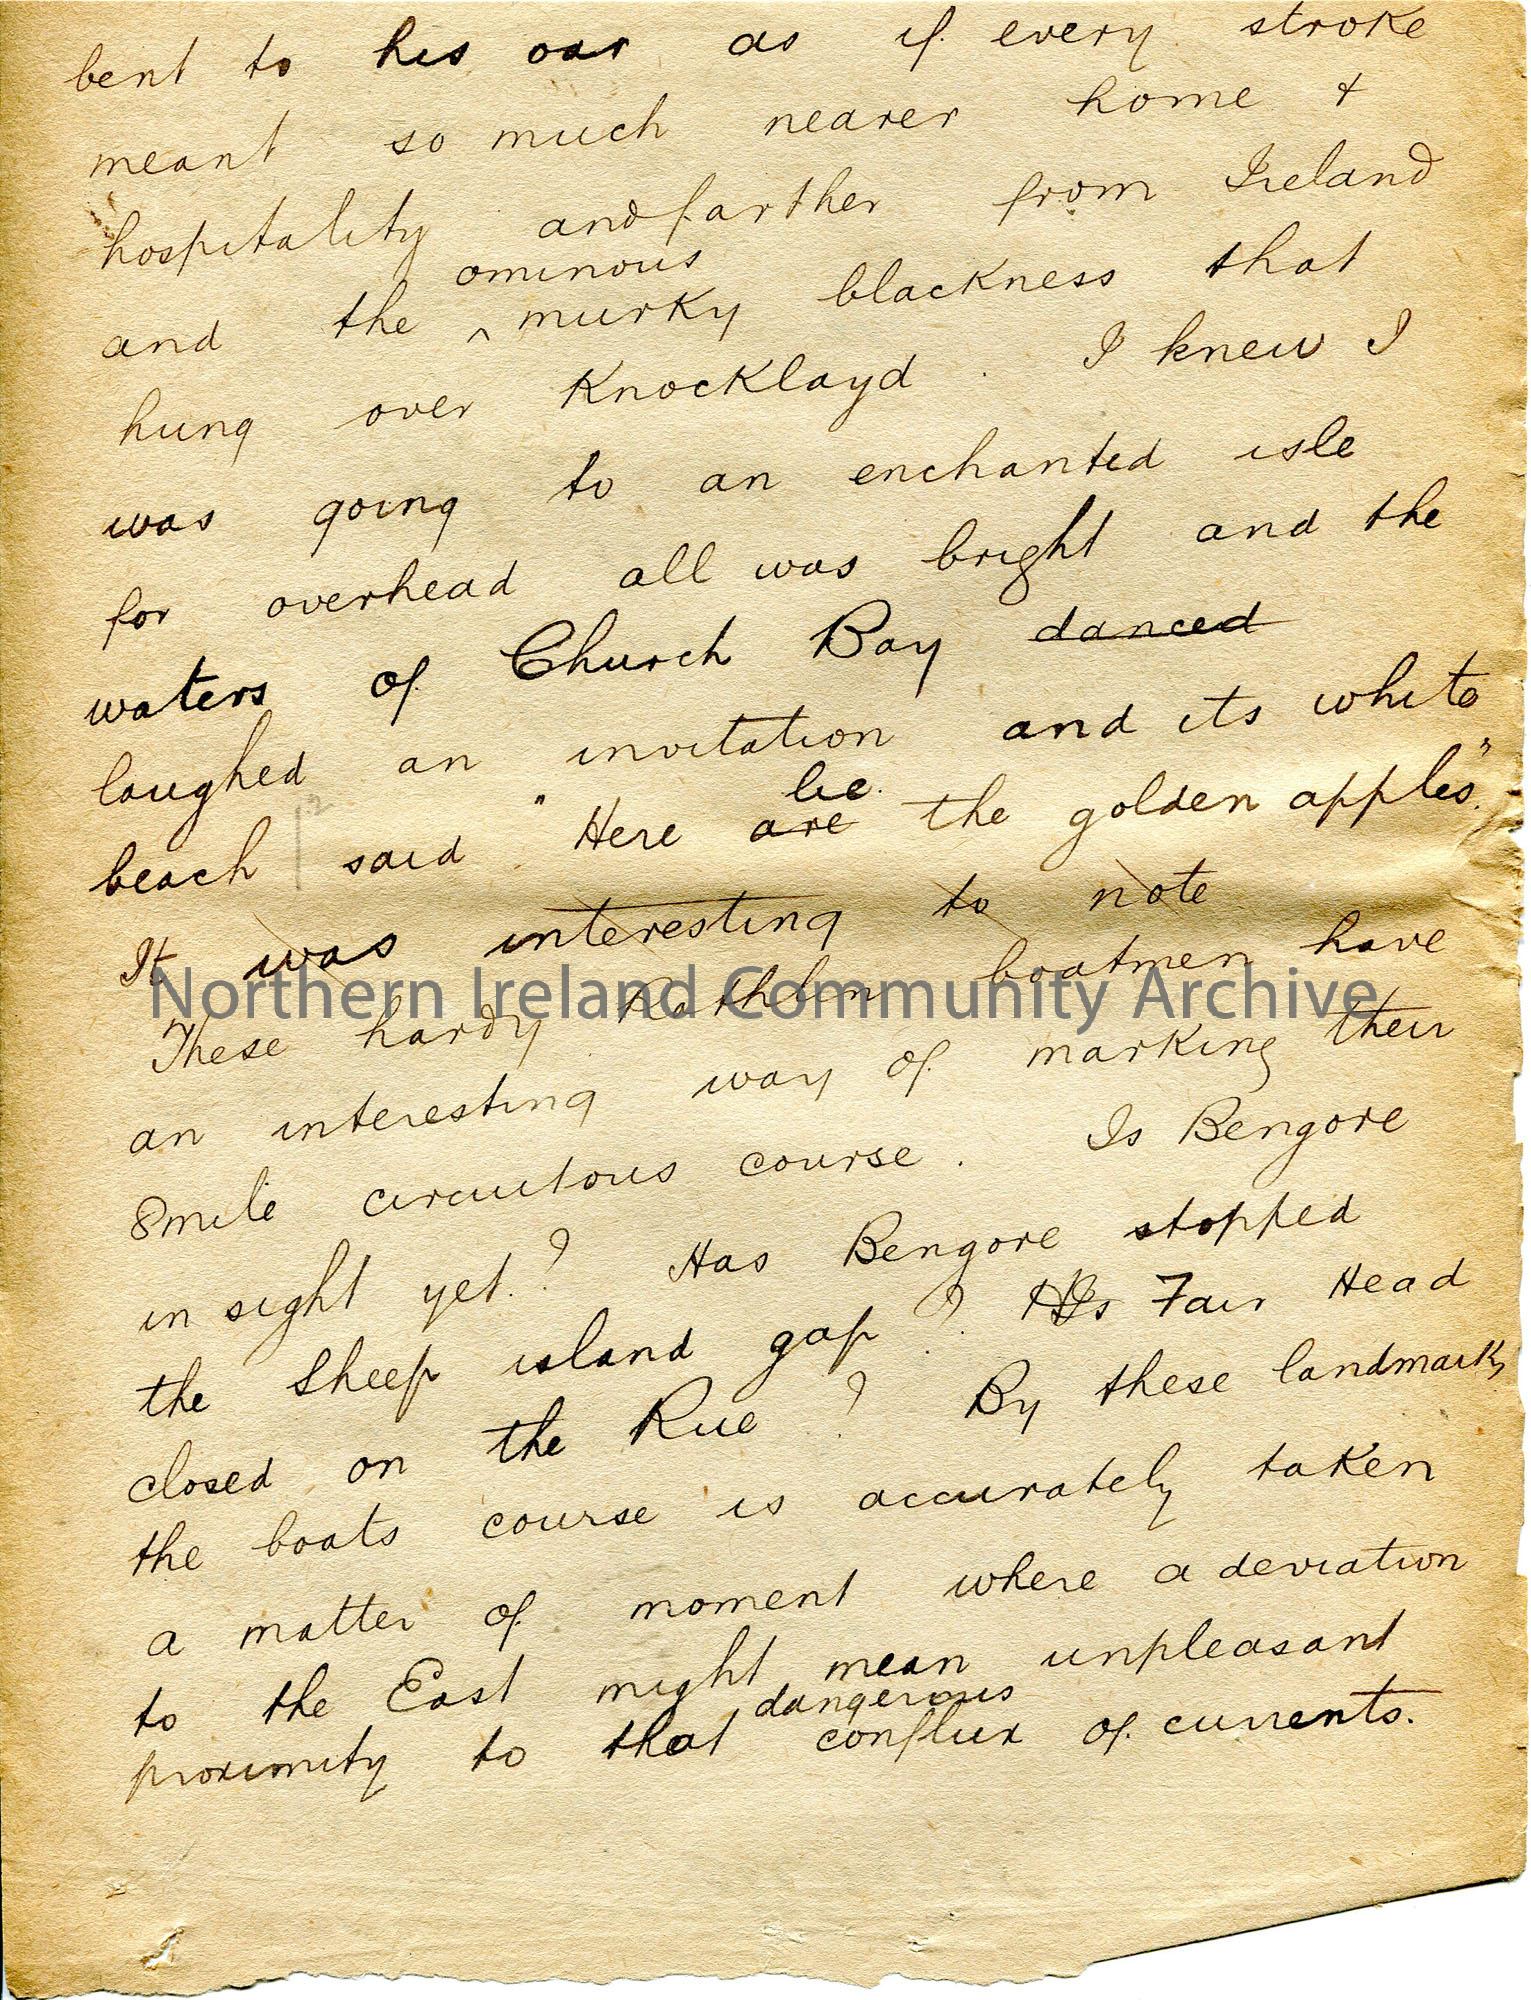 bent to his oar as if every stroke
meant so much nearer home +
hospitality and farther from Ireland
ominous
and the ^ murky blackness that
hung over Knocklayd. I knew I
was going to an enchanted isle
for overhead all was bright and the
waters of Church Bay danced
laughed an invitation and its white
beach said "Here are the golden apples."
be
It was interesting to note
These hardy Rathlin boatmen have
an interesting way of marking their
8mile circuitous course. Is Bengore
in sight yet.? Has Bengore stopped
the Sheep island gap? Is Fair Head
closed on the Rue? By these landmarks
the boats course is accurately taken
a matter of moment where a deviation
to the East might mean unpleasant
dangerous
proximity to that conflux of currents.
Northern Ireland Community Archive